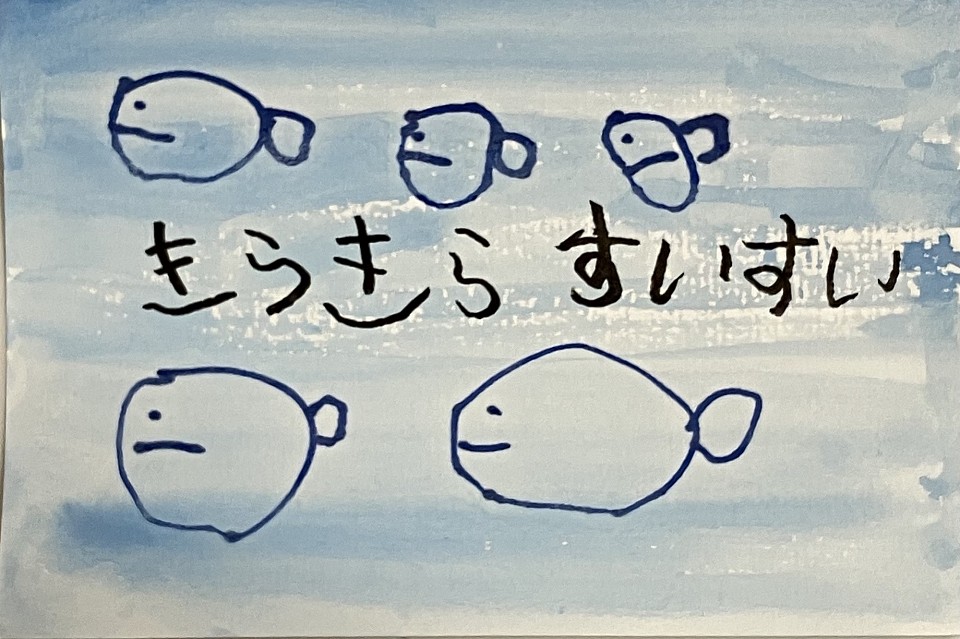 きらきら すいすい